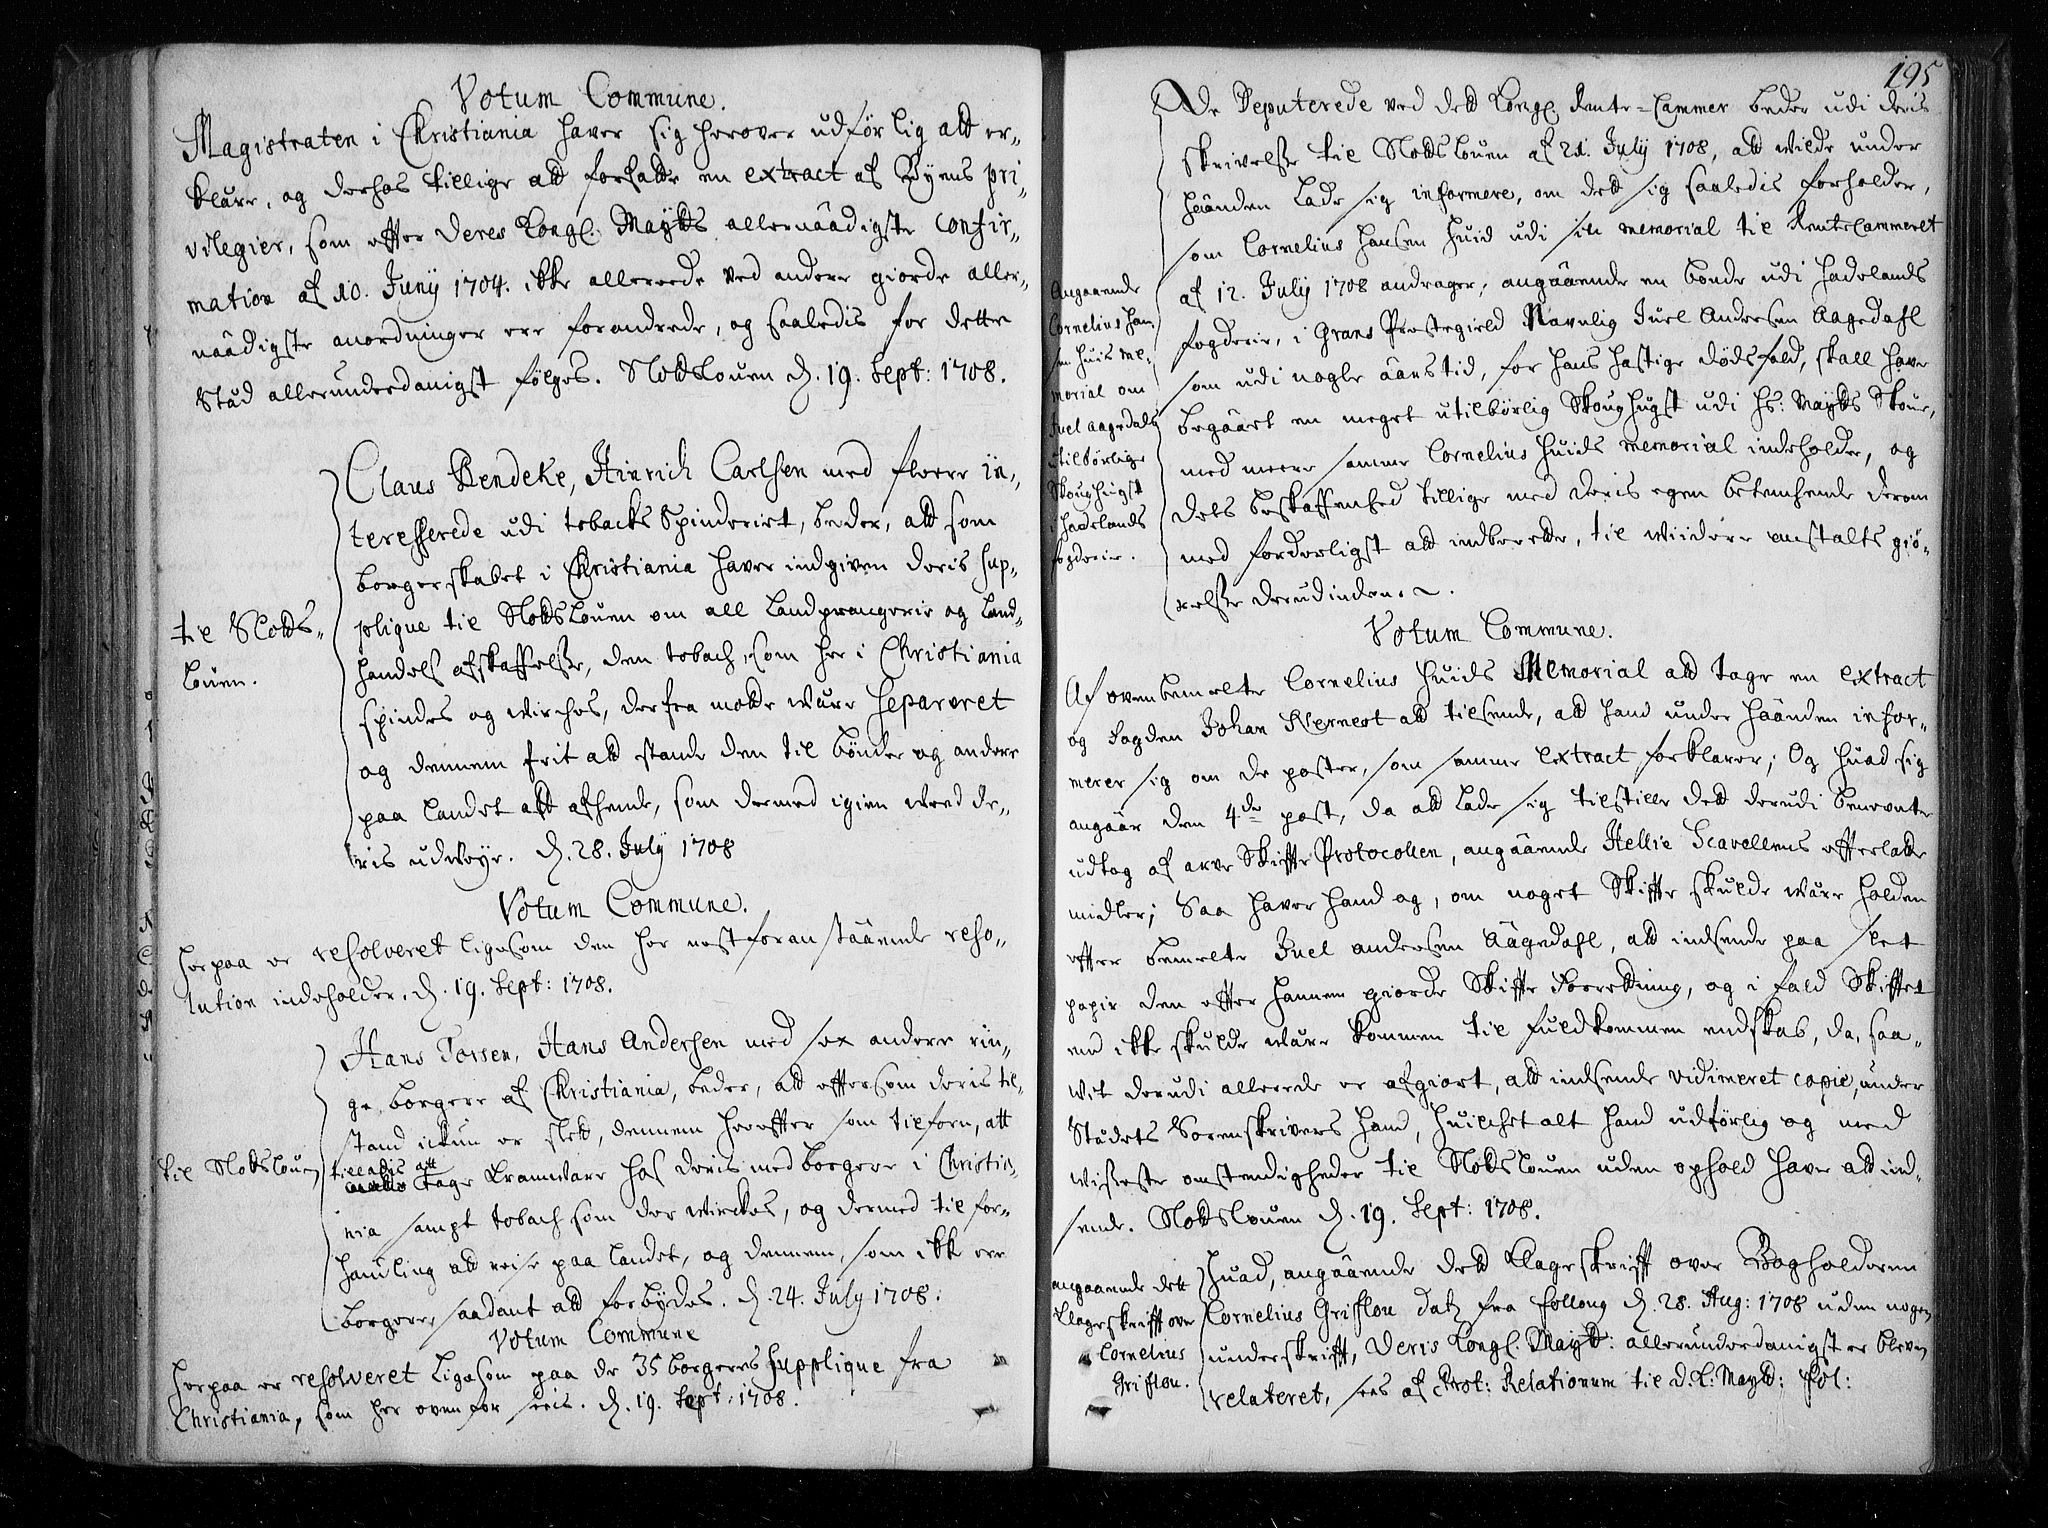 Votum Commune.
Magistraten i Christiania haver sig herover udførlig att er-
klære, og derhos tillige att forfatte en extract af Byens pri-
vilegier, som effter Deres Kongl. Mayts allernäädigste confir-
mation af 10. Juny 1704. ikke allereede ved andere giorde aller-
näädigste anordninger ere forandrede, og saaledis for dette
Stæd allerunderdanigst følges. Slottslouen d. 19. Sept: 1708.
til Slotts-
louen.
Claus Bendeke, Hinrich Carlsen med fleere in-
teresserede udi tobacks Spinderiet, beder, att som
borgerskabet i Christiania haver indgiven deris sup-
plique til Slottslouen om all Landprangerie og Land-
handels afskaffelse, den tobach, som her i Christiania
spindes og wirches, derfra motte være separeret
og dennem frit att stande den til bønder og andere
paa landet att afhende, som dermed igien weed de-
ris udweye. d. 28. July 1708
Votum Commune.
Herpaa er resolveret ligesom den her nest foranstääende reso-
lution indeholder. d. 19. Sept: 1708.
til Slottslouen
Hans Torsen, Hans Andersen med sex andere rin-
ge borgere af Christiania, beder, att effter som deris til-
stand ickun er slett, dennem hereffter som tilforn, att
tilladis att
tage Kramvare hos deris medborgere i Christia-
nia sampt tobach som der wirckes, og dermed til for-
handling att reise paa landet, og dennem, som ikke ere
borgere, saadant att forbydes. d. 24. July 1708.
Votum Commune
Herpaa er resolveret ligesom paa de 35 borgeres supplique fra
Christiania, som her ovenfor sees. d. 19. Sept: 1708.
195
De Deputerede ved dett Kongl. Rente-Cammer beder udi deris
skrivelse til Slottslouen af 21. July 1708, att wilde under
häänden lade sig informere, om dett sig saaledis forholder,
som Cornelius Hansen Huid udi sin memorial til RenteCammeret
af 12. July 1708 andrager, angääende en bonde udi Hadelands
fogderie, i Grans Prestegield Navnlig Juel Andersen Aagedahl
som udi nogle äärs tid, for hans hastige dødsfald, skall have
begäärt en meget utilbørlig Skoughugst udi Hs: Mayts Skoue,
med meere samme Cornelius Huids memorial indeholder, og
dets beskaffenhed tillige med deris egen betenchende derom
med forderligst att indberette, til wiidere anstalts giø-
relse derudinden.
Angaaende
Cornelius Han-
sen Huis Me-
morial om
Juel Aagedals
utilbørlige
Skoughugst
i Hadelands
fogderie.
Votum Commune.
Af ovenbemelte Cornelius Huids Memorial att tage en extract
og fogden Johan Wernest att tilsende, att hand under häänden infor-
merer sig om de poster, som samme extract forklarer; Og huad sig
angäär den 4de post, da att lade sig tilstille dett derudi benevnte
udtog af arve Skiffte Protocollen, angääende Hellie Scavellens effterlatte
midler; Saa haver hand og, om noget Skiffte skulde være holden
effter bemelte Juel Andersen Äägedahl, att indsende paa slet
papir den effter hannem giorde Skiffte Forretning, og i fald Skifftet
end ikke skulde være kommen til fuldkommen endskab, da, saa-
wit derudi allerede er afgiort, att indsende vidimeret copie, under
Stædets Sorenskrivers Hand, huilchet alt hand udførlig og med
wisseste omstendigheder til Slottslouen uden ophold haver att ind-
sende. Slottslouen d. 19. Sept: 1708.
angaaende dett
Klageskrifft over
Cornelius
Grifflou.
Huad, angääende dett Klageskrifft over Bogholderen
Cornelius Grifflou dat. fra Follong d. 28. Aug: 1708 uden nogen
underskrifft, Deris Kongl. Mayt: allerunderdanigst er bleven
relateret, sees af Prot: Relationum til D. K. Mayt: fol: